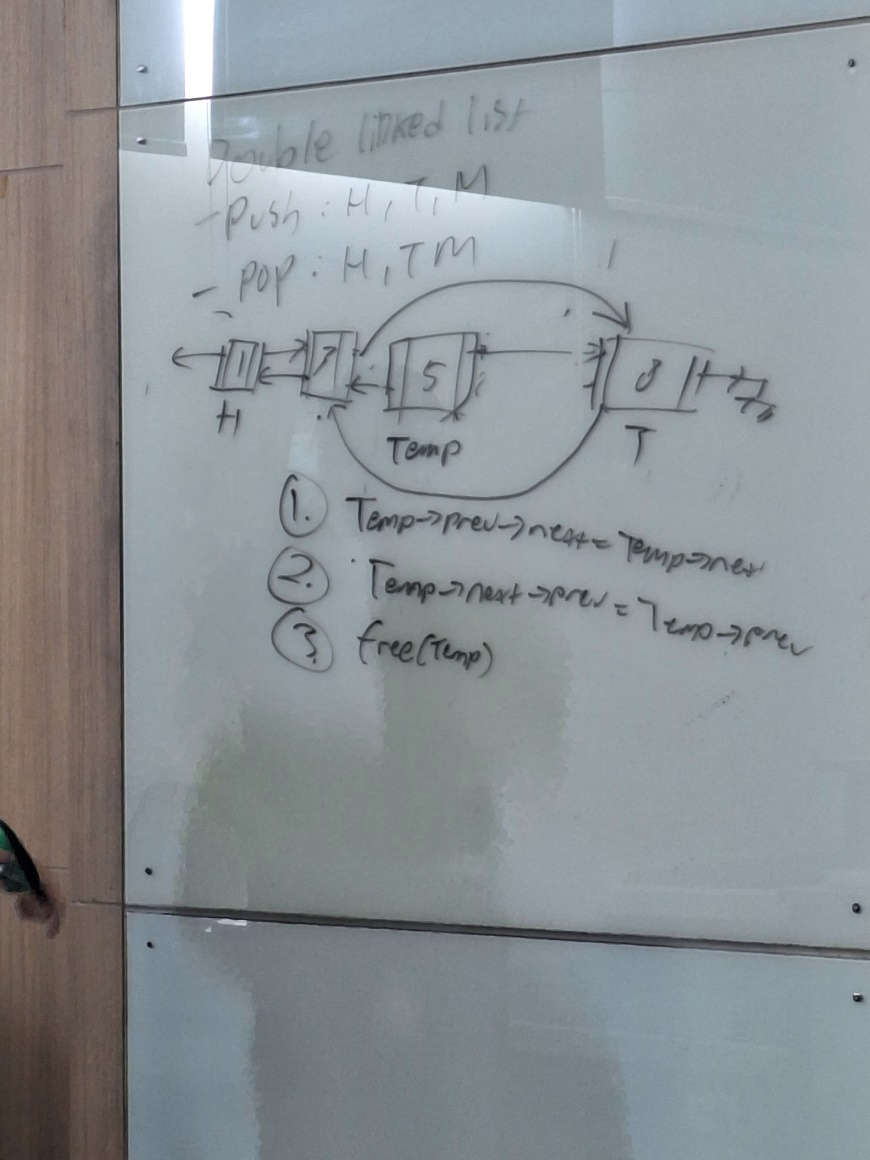 Double linked list
- Push : H, T, M
- POP : H, TM
1 3 5 8
H Temp T
1. Temp->prev->next = Temp->next
2. Temp->next->prev = Temp->prev
3. free(Temp)